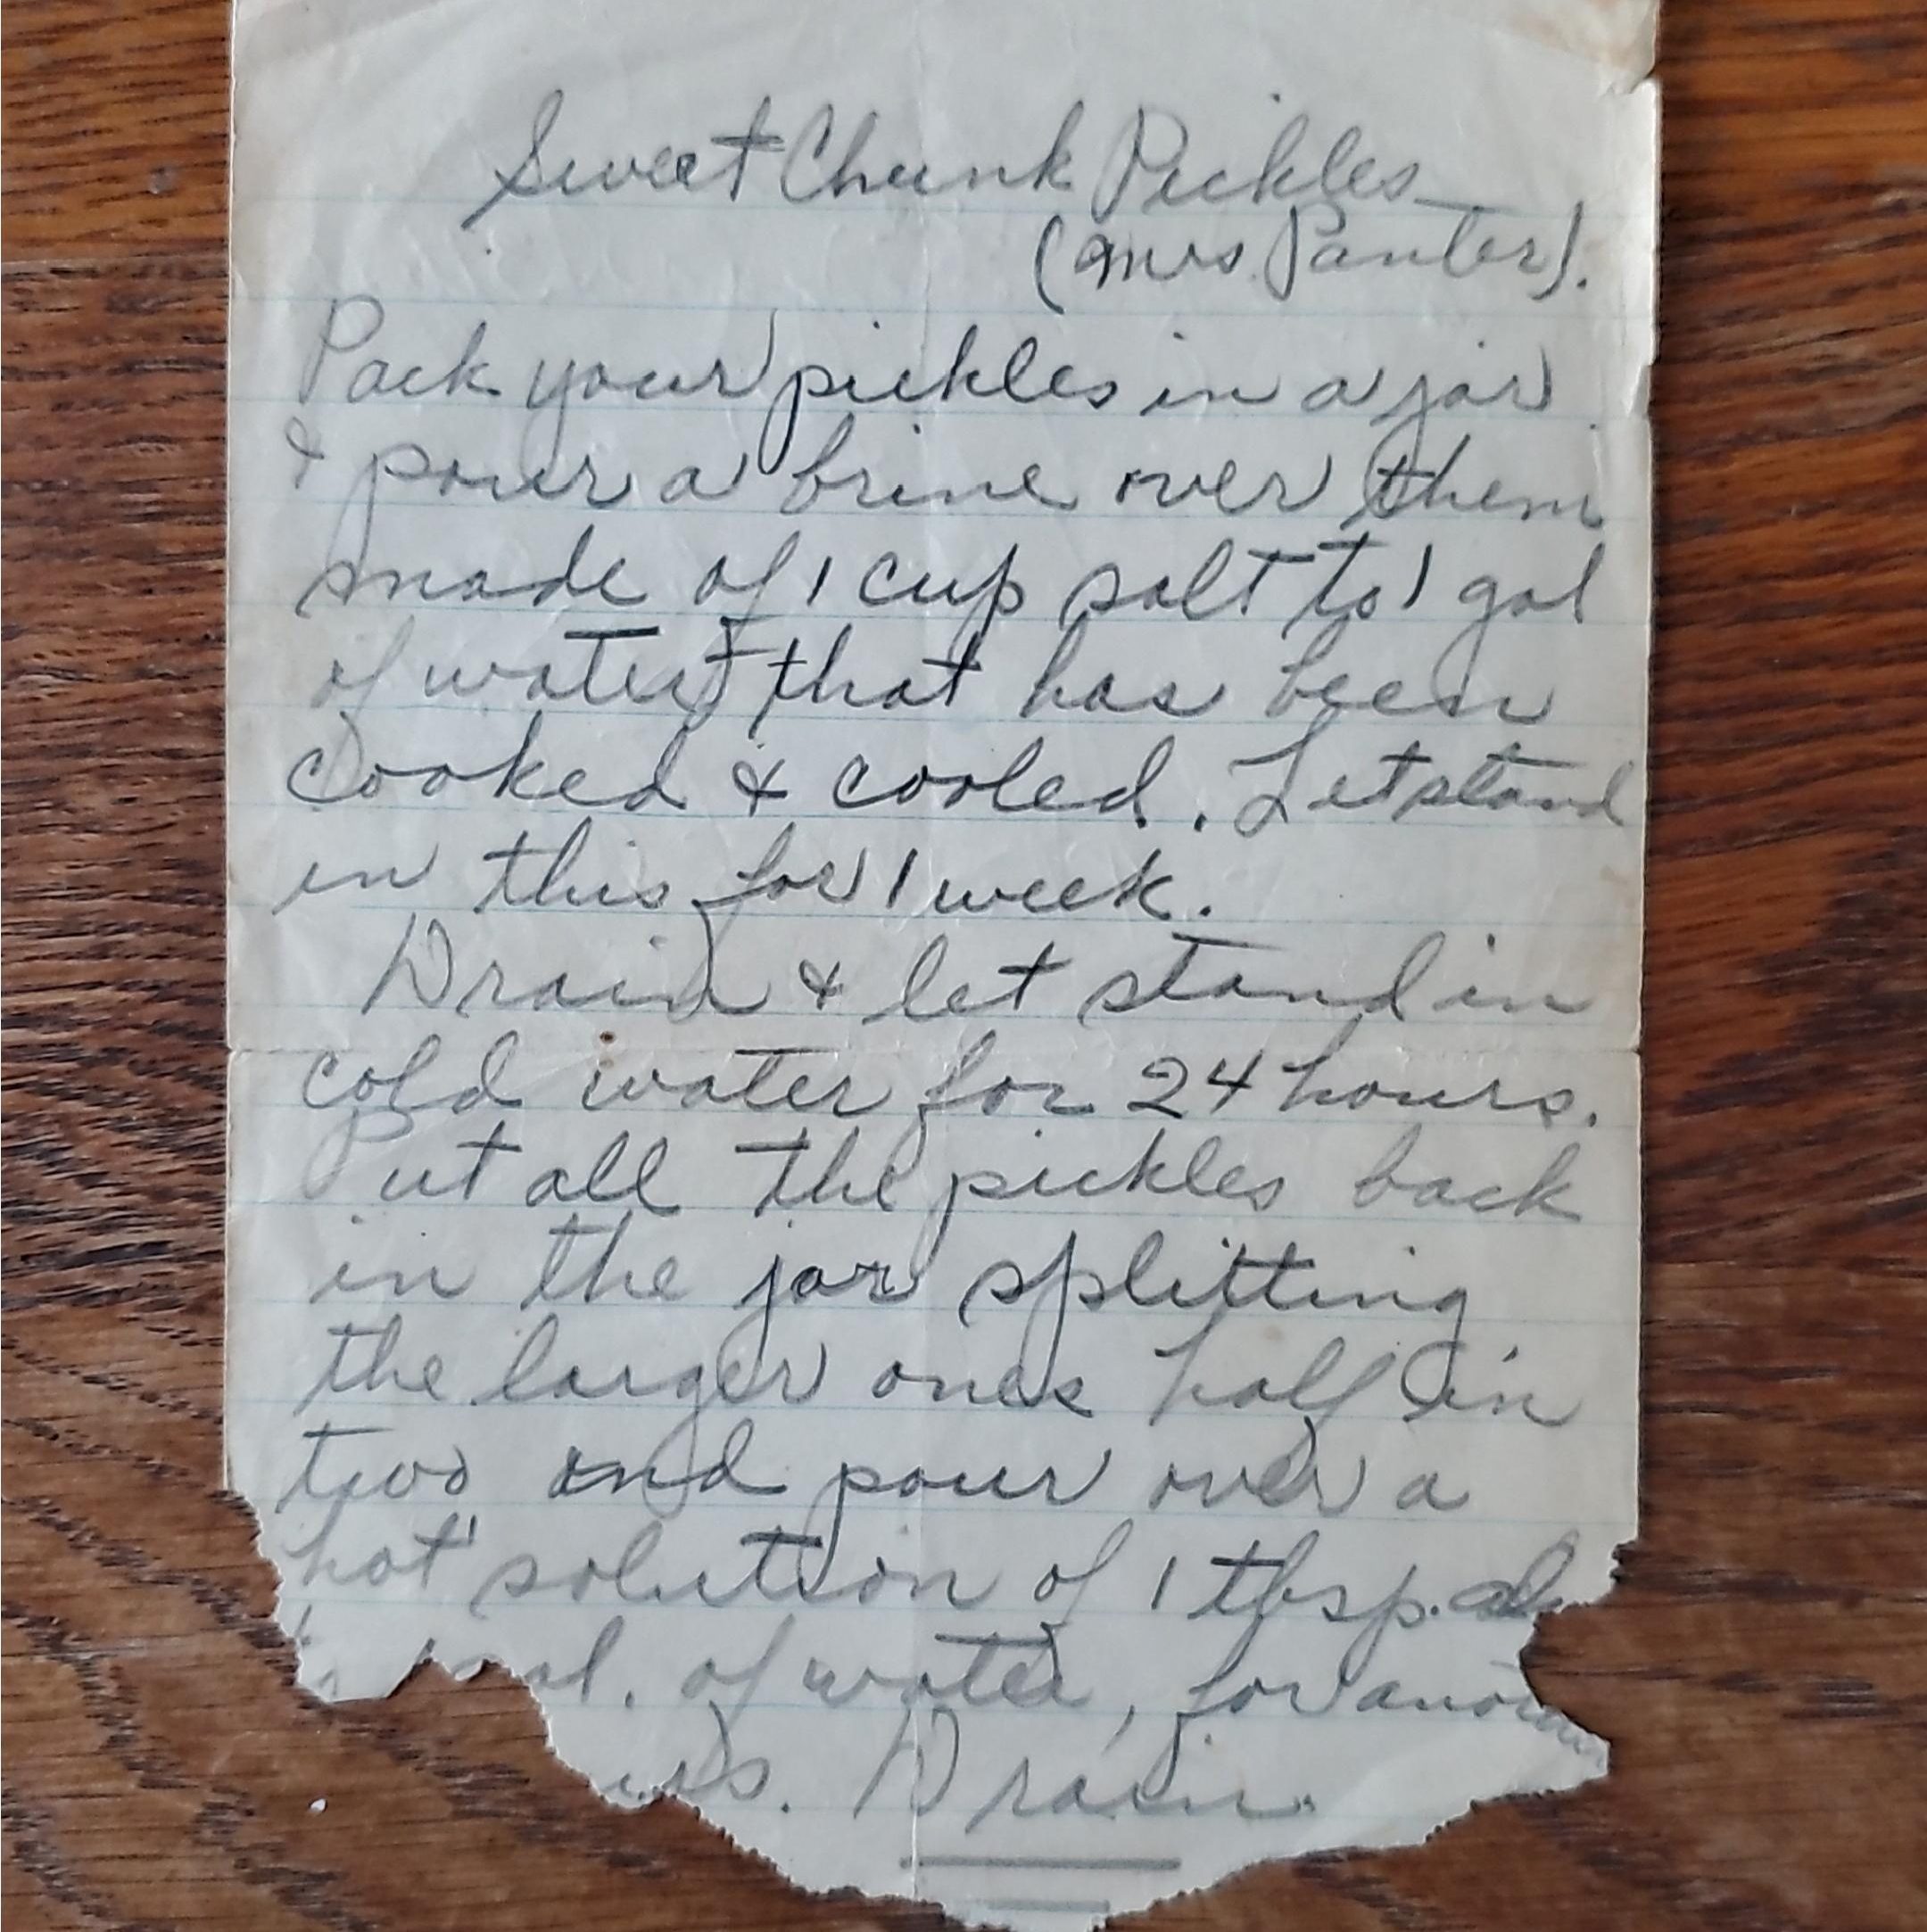 Sweet Chunk Pickles
(Mrs. Panter).
Pack your pickles in a jar
& pour a brine over them
made of 1 cup salt to 1 gal
of water that has been
cooked & cooled. Let stand
in this for 1 week.
Drain & let stand in
cold water for 24 hours.
Put all the pickles back
in the jar splitting
the larger ones half in
two and pour over a
hot solution of 1 tbsp.
of water, for
Drain